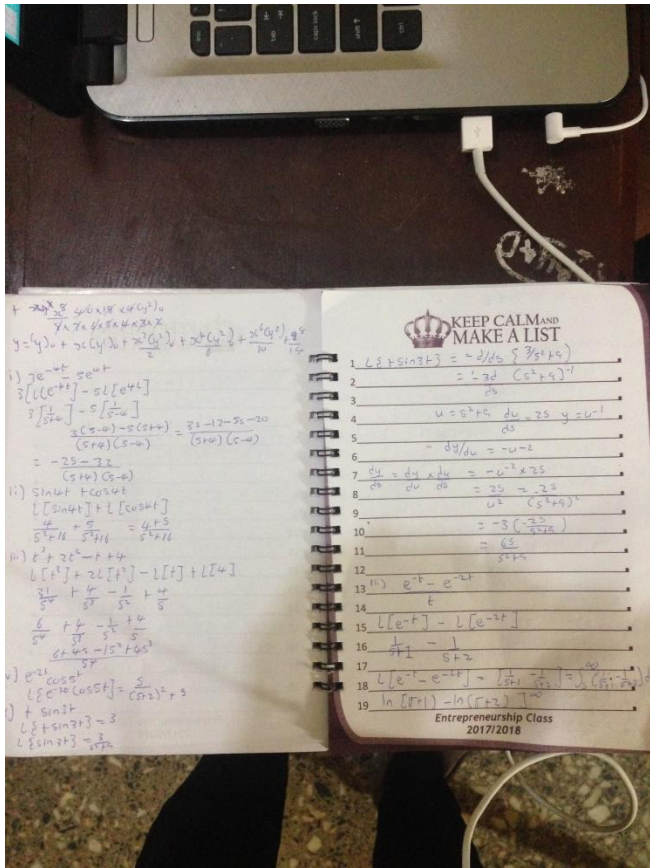 tab
caps lock
shift
ctrl
i) 3e^-4t - 5e^4t
3[L(e^-4t] - 5L[e^4t]
3[1/s+4] - 5[1/s-4]
3(s-4) - 5(s+4)/(s+4)(s-4) = 3s-12-5s-20/(s+4)(s-4)
= -2s-32/(s+4)(s-4)
ii) sin4t + cos4t
L[sin4t] + L[cos4t]
4/s²+16 + s/s²+16 = 4+s/s²+16
iii) t³ + 2t² - t + 4
L[t³] + 2L[t²] - L[t] + L[4]
3!/s⁴ + 4/s³ - 1/s² + 4/s
6/s⁴ + 4/s³ - 1/s² + 4/s
6+4s-1s²+4s³/s⁴
e^-2t cos5t
t sin3t
L{t sin3t} = 3
L{sin3t} = 3/s²+9
KEEP CALM AND
MAKE A LIST
1 L{t sin3t} = -d/ds {3/s²+9}
2 = -3d/ds (s²+9)^-1
3
4 u = s²+9 du/ds = 2s y = u^-1
5
6 dy/du = -u^-2
7 dy/ds = dy/du x du/ds = -u^-2 x 2s
8 = 2s/u² = -2s/(s²+9)²
9
10 = -3(-2s/s²+9)
11 = 6s/s²+9
12
13 ii) e^-t - e^-2t
14 t
15 L[e^-t] - L[e^-2t]
16 1/s+1 - 1/s+2
17
18 L[e^-t - e^-2t] = [1/s+1 - 1/s+2] =
19 ln[s+1) - ln(s+2)]^∞
Entrepreneurship Class
2017/2018